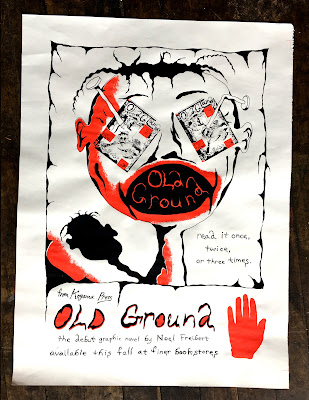 OLD
Ground
read it once,
twice,
or three times.
from Koyama Press
OLD Ground
the debut graphic novel by Noel Freibert
available this fall at finer bookstores